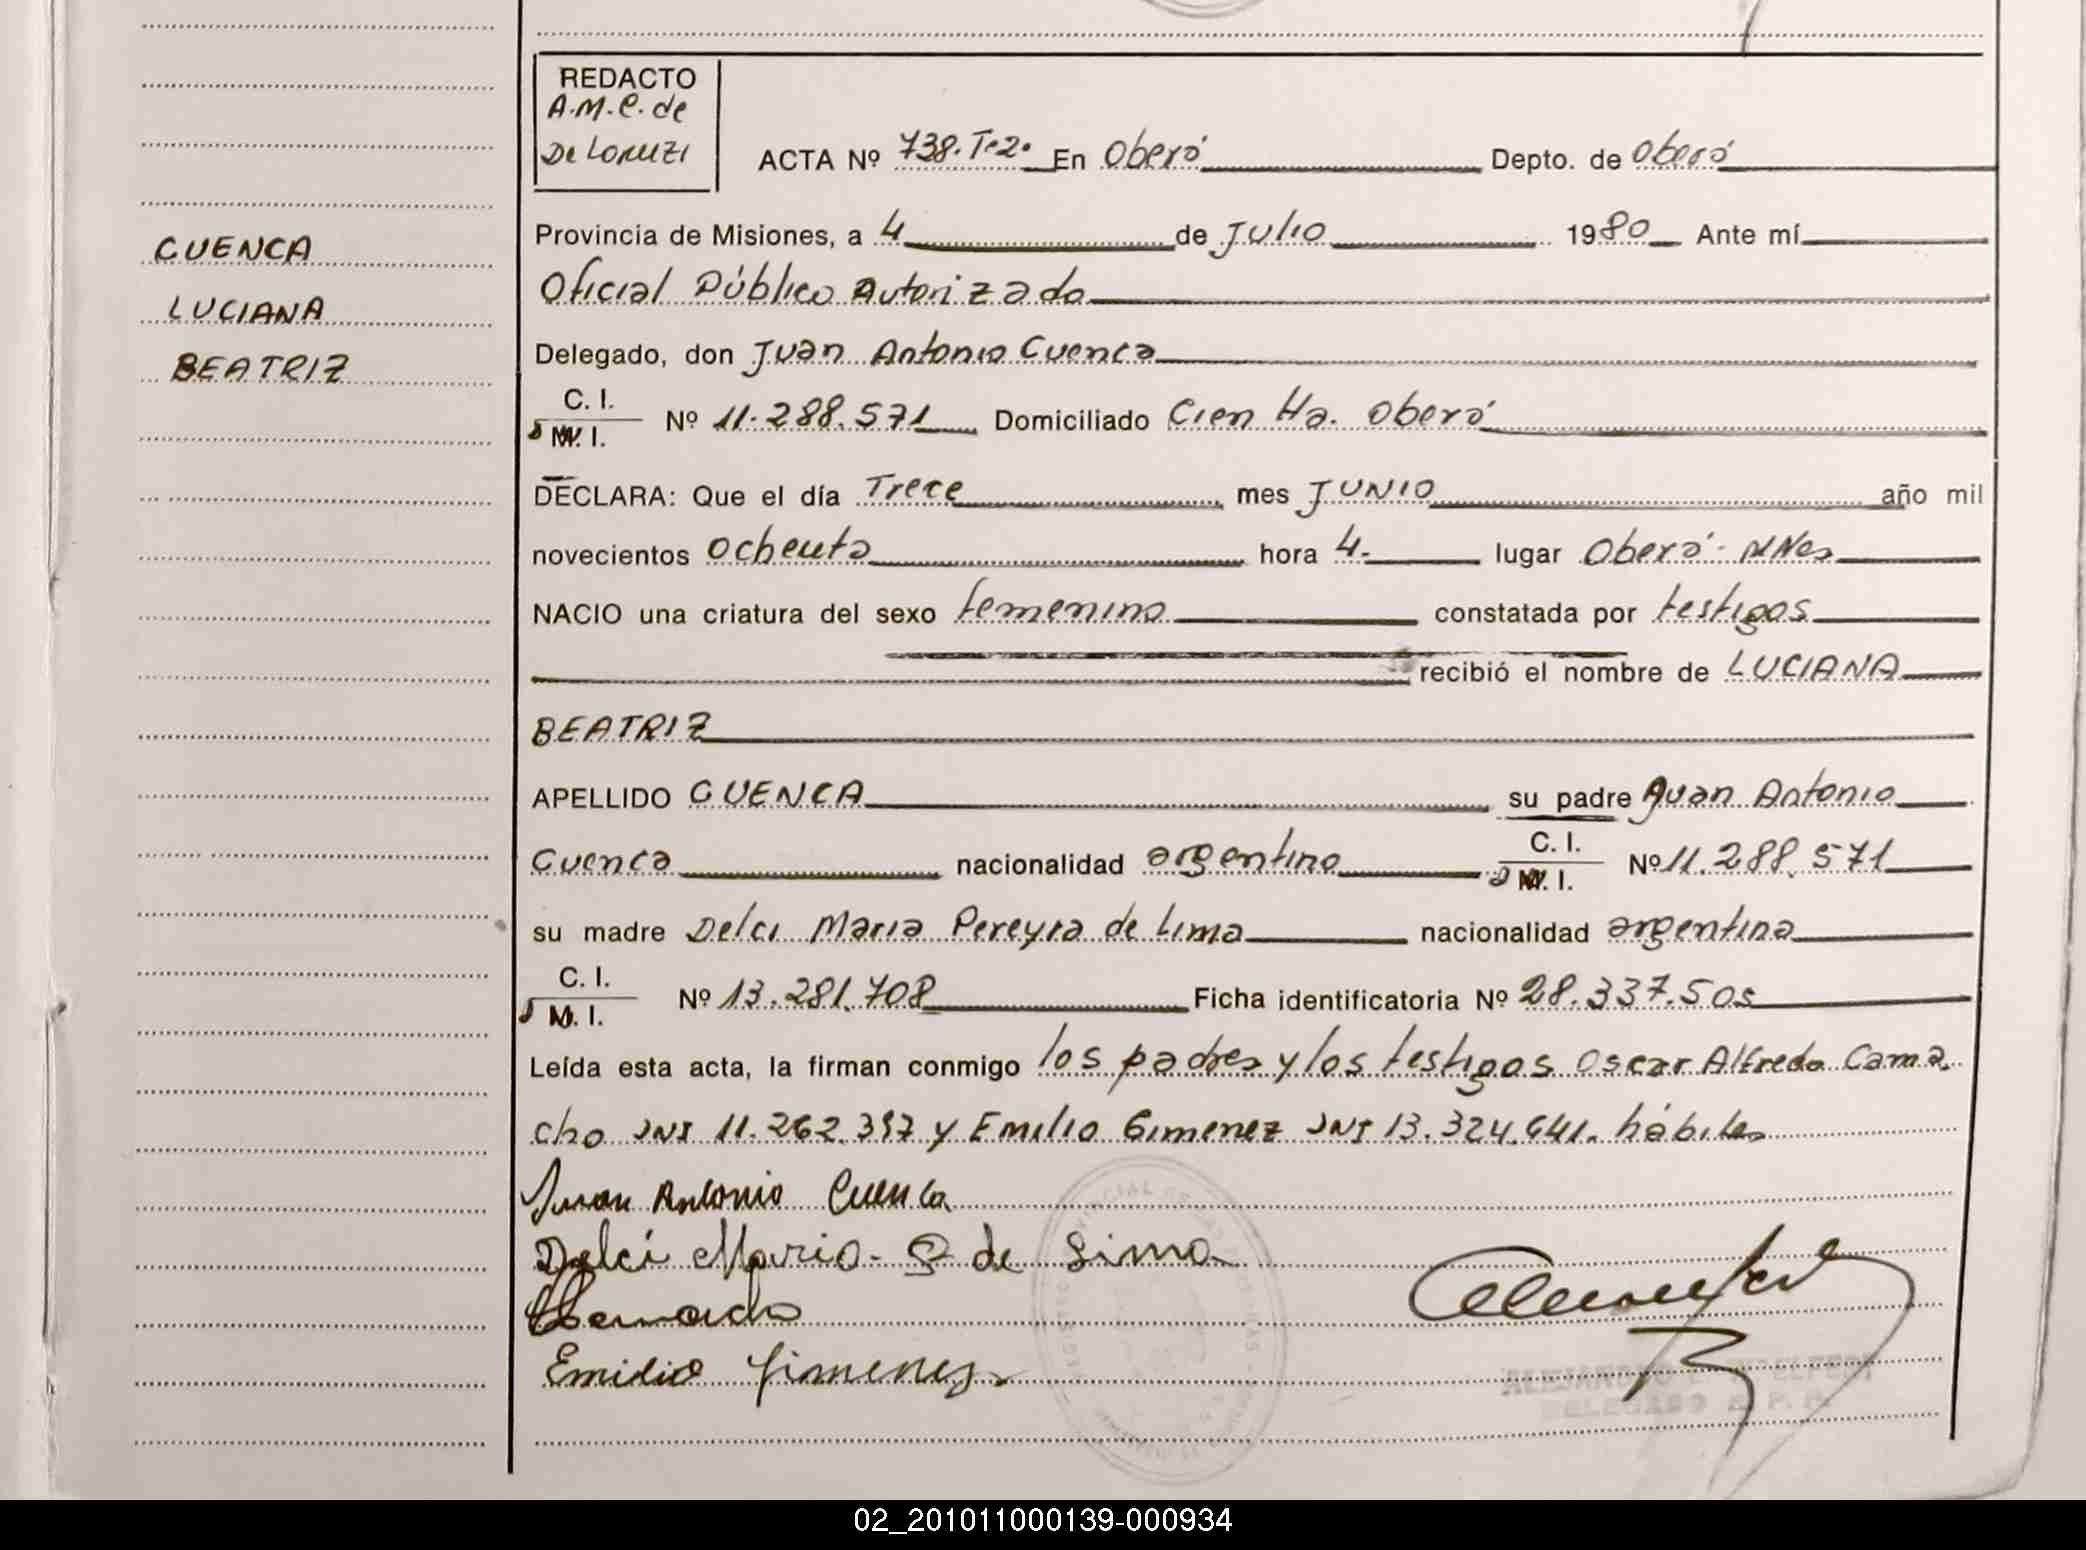 REDACTO
A.M.C. de
De Loruzi
ACTA Nº 738.Tº2º En Oberá Depto. de Oberá
CUENCA
LUCIANA
BEATRIZ
Provincia de Misiones, a 4 de Julio 1980 Ante mí
Oficial Público Autorizado
Delegado, don Juan Antonio Cuenca
C. I.
M. I. Nº 11.288.571 Domiciliado Cien Ha. Oberá
DECLARA: Que el día Trece mes JUNIO año mil
novecientos ochenta hora 4. lugar Oberá - MNes
NACIO una criatura del sexo femenino constatada por testigos
recibió el nombre de LUCIANA
BEATRIZ
APELLIDO CUENCA su padre Juan Antonio
Cuenca nacionalidad argentina C. I.
M. I. Nº 11.288.571
su madre Delci Maria Pereyra de Lima nacionalidad argentina
C. I.
M. I. Nº 13.281.708 Ficha identificatoria Nº 28.337.505
Leída esta acta, la firman conmigo los padres y los testigos Oscar Alfredo Cama
cho DNI 11.262.397 y Emilio Gimenez DNI 13.324.641. hábiles
Juan Antonio Cuenca
Delci Maria P de Lima
Emilio Gimenez
DELEGADO
02_201011000139-000934